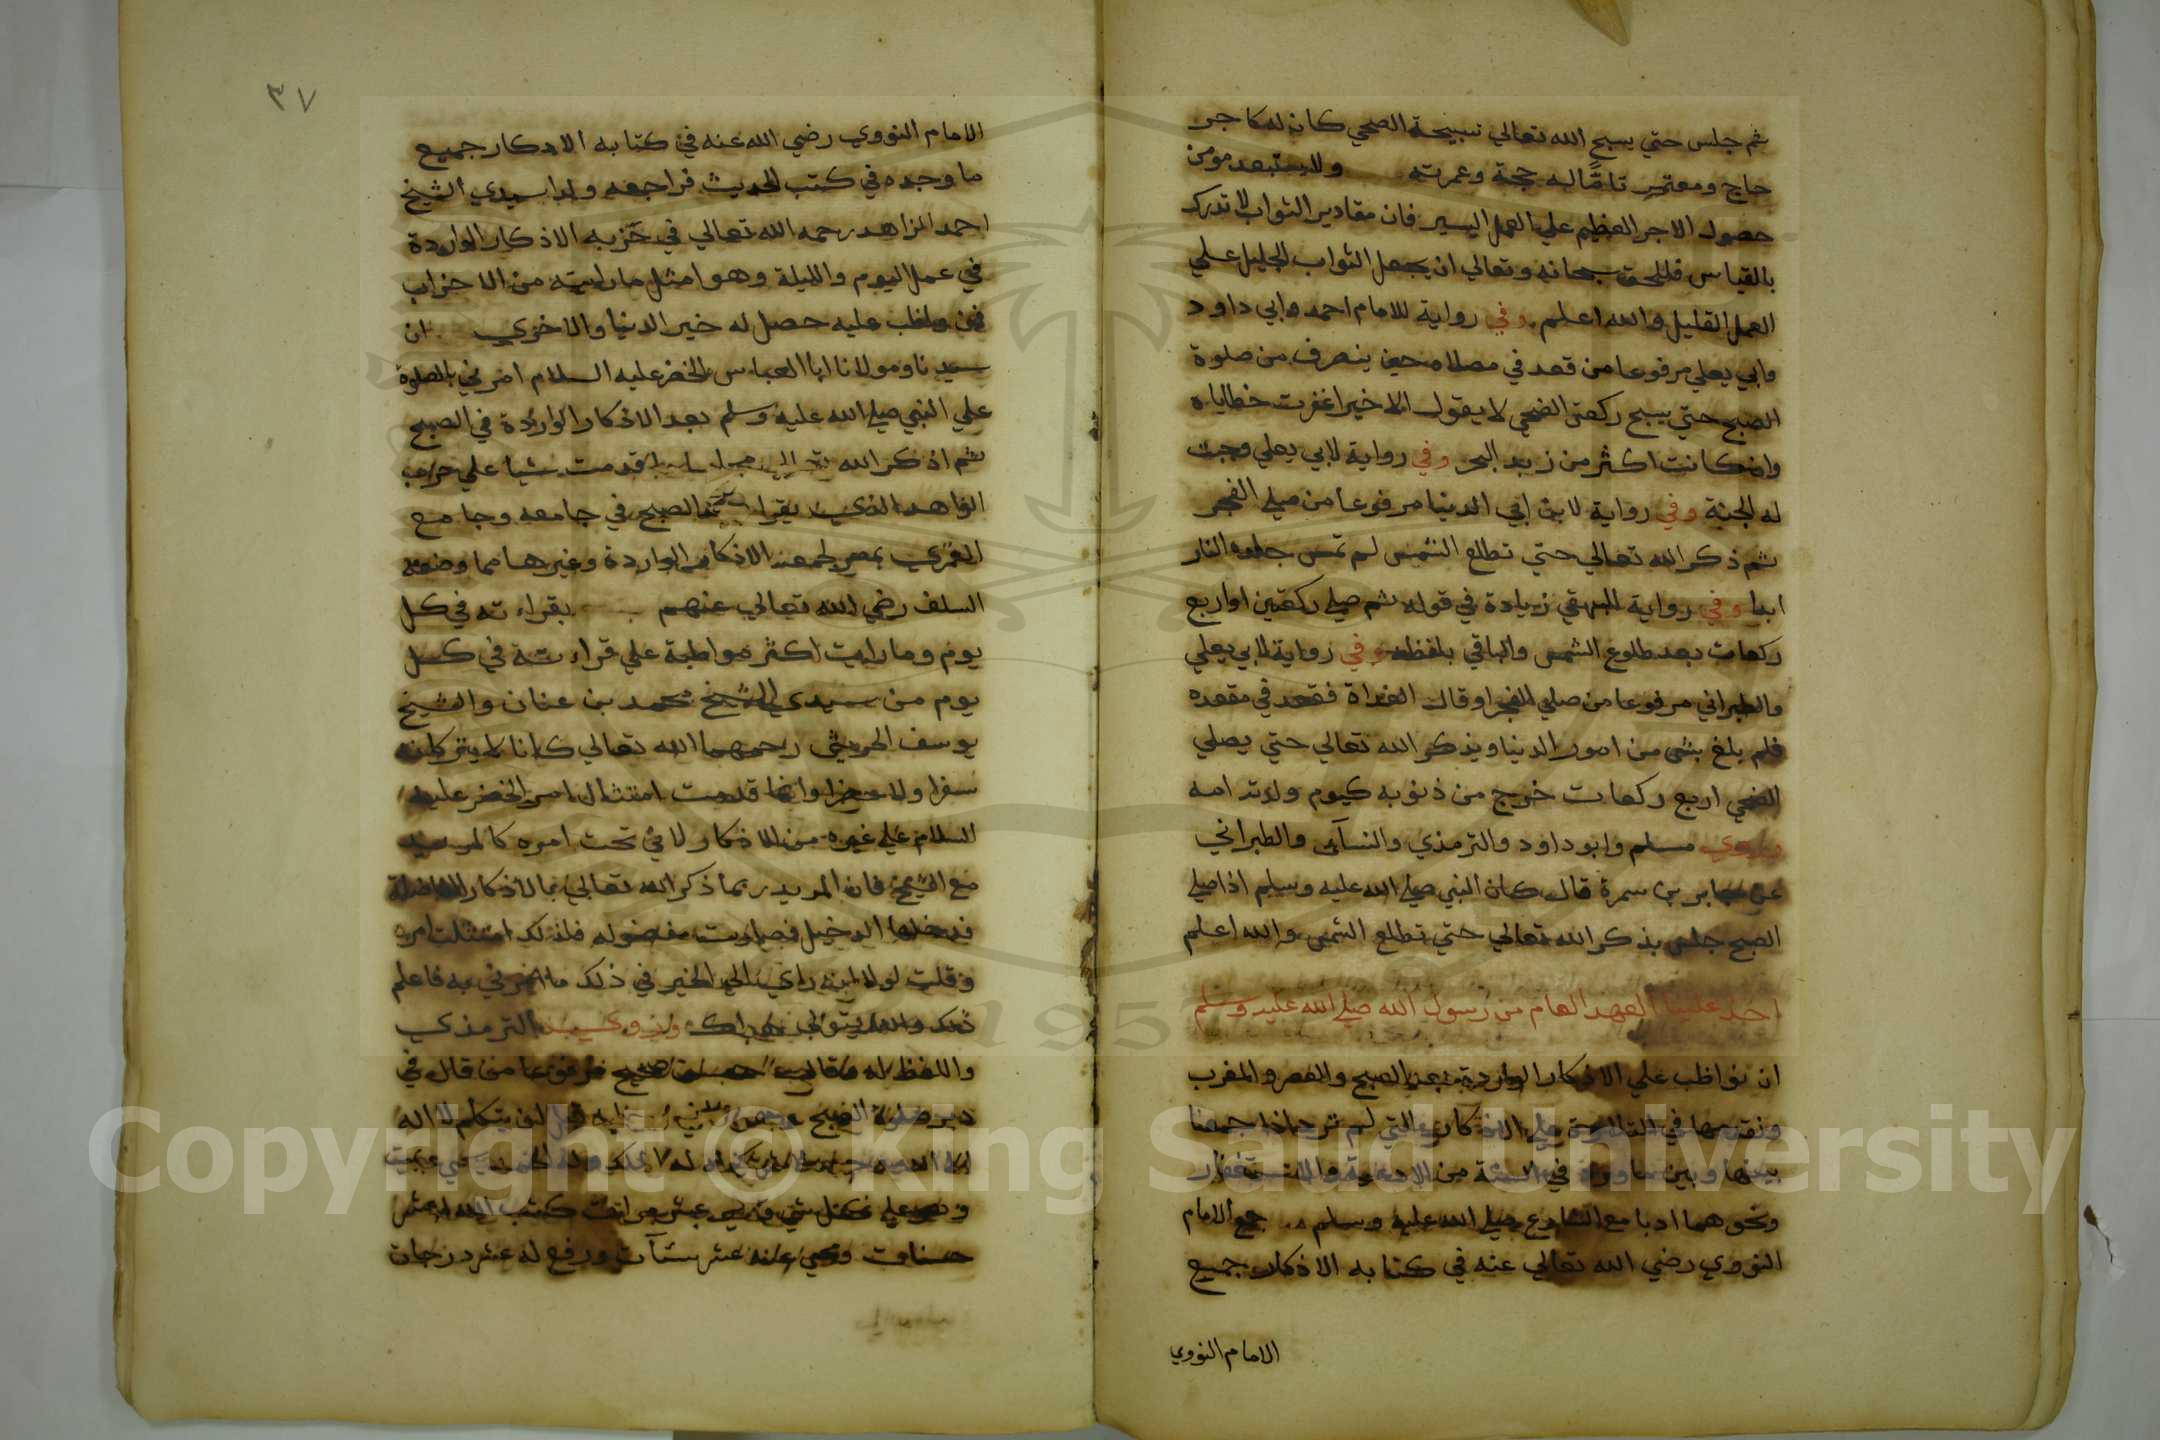 ثم جلس حتي يسبح الله تعالي تسبيحة الضحي كان له كاجر
حاج ومعتمر تامّا له حجة وعمرته ولا يستبعد مومن
حصول الاجر العظيم علي العمل اليسير فان مقادير الثواب لا تدرك
بالقياس فللحق سبحانه وتعالي ان يجعل الثواب الجليل علي
العمل القليل والله اعلم وفي رواية للامام احمد وابي داود
وابي يعلي مرفوعا من قعد في مصلاه حين ينصرف من صلوة
الصبح حتي يسبح ركعتي الضحي لا يقول الا خيرا غفرت خطاياه
وان كانت اكثر من زبد البحر وفي رواية لابي يعلي وجبت
له الجنة وفي رواية لابن ابي الدنيا مرفوعا من صلي الفجر
ثم ذكر الله تعالي حتي تطلع الشمس لم تمس جلده النار
ابدا وفي رواية البيهقي زيادة في قوله ثم صلي ركعتين او اربع
ركعات بعد طلوع الشمس والباقي بلفظه وفي رواية لابي يعلي
والطبراني مرفوعا من صلي الفجر او قال الغداة فقعد في مقعده
فلم يلغ بشي من امور الدنيا ويذكر الله تعالي حتي يصلي
الضحي اربع ركعات خرج من ذنوبه كيوم ولدته امه
وروي مسلم وابو داود والترمذي والنسآي والطبراني
عن جابر بن سمرة قال كان النبي صلي الله عليه وسلم اذا صلي
الصبح جلس يذكر الله تعالي حتي تطلع الشمس والله اعلم
اخذ علينا العهد العام من رسول الله صلي الله عليه وسلم
ان نواظب علي الاذكار الواردة بعد الصبح والعصر والمغرب
ونقدمها في التلاوة علي الاذكار التي لم ترد اذا جمعنا
بينها وبين ما ورد في السنة من الادعية والاستغفار
ونحوهما ادبا مع الشارع صلي الله عليه وسلم جمع الامام
النووي رضي الله تعالي عنه في كتابه الاذكار جميع
الامام النووي
٣٧
الامام النووي رضي الله عنه في كتابه الاذكار جميع
ما وجده في كتب الحديث فراجعه ولذا سيدي الشيخ
احمد الزاهد رحمه الله تعالي في حزبه الاذكار الواردة
في عمل اليوم والليلة وهو امثل ما رايته من الاحزاب
فمن واظب عليه حصل له خير الدنيا والاخري ان
سيدنا ومولانا ابا العباس الخضر عليه السلام امرني بالصلوة
علي النبي صلي الله عليه وسلم بعد الاذكار الواردة في الصبح
ثم اذكر الله تعالي قدمت شيا علي حزب
الزاهد الذي يقرا بعد الصبح في جامعه وجامع
الغمري بمصر لجمعه الاذكار الواردة وغيرها مما وضعه
السلف رضي الله تعالي عنهم بقراءته في كل
يوم وما رايت اكثر مواظبة علي قراءته في كل
يوم من سيدي الشيخ محمد بن عنان والشيخ
يوسف الحريثي رحمهما الله تعالي كانا لا يتركانه
سفرا ولا حضرا وانما قدمت امتثال امر الخضر عليه
السلام علي غيره من الاذكار لاني تحت امره كالمريد
مع الشيخ فان المريد ربما ذكر الله تعالي بالاذكار الفاضلة
فدخلها الدخيل فصارت مفضولة فلذلك امتثلت امره
وقلت لولا انه راي الي الخير في ذلك ما امرني به فاعلم
ذلك والله يتولي هداك وروي الترمذي
واللفظ له وقال حسن صحيح مرفوعا من قال في
دبر صلوة الصبح وهو ثاني رجليه قبل ان يتكلم لا اله
الا الله وحده لا شريك له له الملك وله الحمد يحيي ويميت
وهو علي كل شي قدير عشر مرات كتب الله له عشر
حسنات ومحي عنه عشر سيآت ورفع له عشر درجات
Copyright © King Saud University
1957